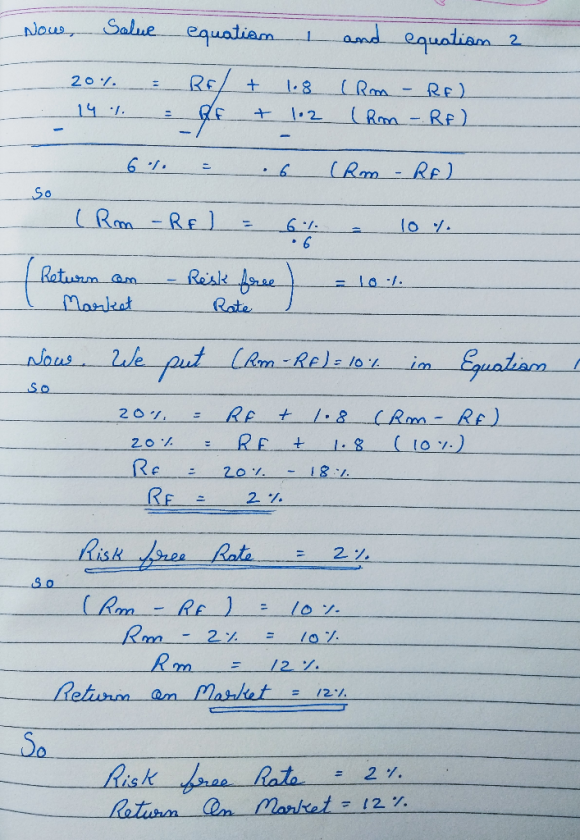 Now, Solve equation 1 and equation 2
20 % = RF + 1.8 (Rm - RF)
14 % = RF + 1.2 (Rm - RF)
- - -
6 % = .6 (Rm - RF)
So
(Rm - RF) = 6 % / .6 = 10 %
(Return on Market - Risk free Rate) = 10 %
Now, We put (Rm - RF) = 10 % in Equation 1
so
20 % = RF + 1.8 (Rm - RF)
20 % = RF + 1.8 (10 %)
RF = 20 % - 18 %
RF = 2 %
Risk free Rate = 2 %
so
(Rm - RF) = 10 %
Rm - 2 % = 10 %
Rm = 12 %
Return on Market = 12 %
So
Risk free Rate = 2 %
Return On Market = 12 %